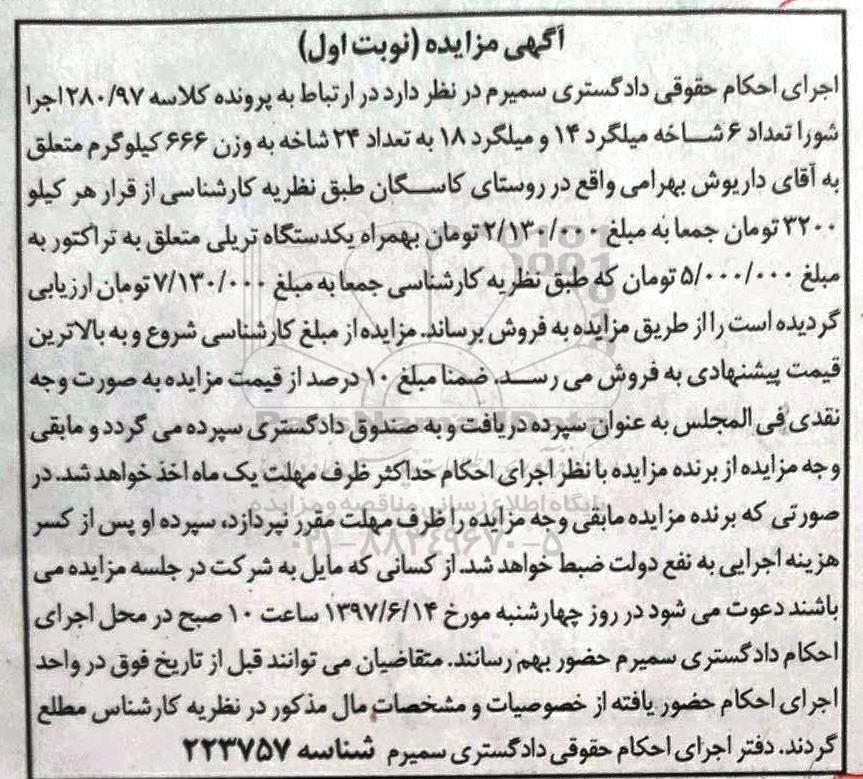 آگهی مزایده (نوبت اول)
اجرای احکام حقوقی دادگستری سمیرم در نظر دارد در ارتباط به پرونده کلاسه ۲۸۰/۹۷ اجرا
شورا تعداد ۶ شاخه میلگرد ۱۴ و میلگرد ۱۸ به تعداد ۲۴ شاخه به وزن ۶۶۶ کیلوگرم متعلق
به آقای داریوش بهرامی واقع در روستای کاسگان طبق نظریه کارشناسی از قرار هر کیلو
۳۲۰۰ تومان جمعا به مبلغ ۲/۱۳۰/۰۰۰ تومان بهمراه یکدستگاه تریلی متعلق به تراکتور به
مبلغ ۵/۰۰۰/۰۰۰ تومان که طبق نظریه کارشناسی جمعا به مبلغ ۷/۱۳۰/۰۰۰ تومان ارزیابی
گردیده است را از طریق مزایده به فروش برساند. مزایده از مبلغ کارشناسی شروع و به بالاترین
قیمت پیشنهادی به فروش می رسد. ضمنا مبلغ ۱۰ درصد از قیمت مزایده به صورت وجه
نقدی فی المجلس به عنوان سپرده دریافت و به صندوق دادگستری سپرده می گردد و مابقی
وجه مزایده از برنده مزایده با نظر اجرای احکام حداکثر ظرف مهلت یک ماه اخذ خواهد شد. در
صورتی که برنده مزایده مابقی وجه مزایده را ظرف مهلت مقرر نپردازد، سپرده او پس از کسر
هزینه اجرایی به نفع دولت ضبط خواهد شد. از کسانی که مایل به شرکت در جلسه مزایده می
باشند دعوت می شود در روز چهارشنبه مورخ ۱۳۹۷/۶/۱۴ ساعت ۱۰ صبح در محل اجرای
احکام دادگستری سمیرم حضور بهم رسانند. متقاضیان می توانند قبل از تاریخ فوق در واحد
اجرای احکام حضور یافته از خصوصیات و مشخصات مال مذکور در نظریه کارشناس مطلع
گردند. دفتر اجرای احکام حقوقی دادگستری سمیرم شناسه ۲۲۳۷۵۷
پایگاه اطلاع رسانی مناقصه و مزایده
۰۲۱-۸۸۳۴۹۶۷۰-۵